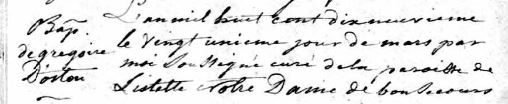 Bap.
de gregoire
Doiton
L'an mil huit cent dixneuvieme
le vingt unieme jour de mars par
moi Soussigné curé de la paroisse de
Lislette Notre Dame de bonsecours